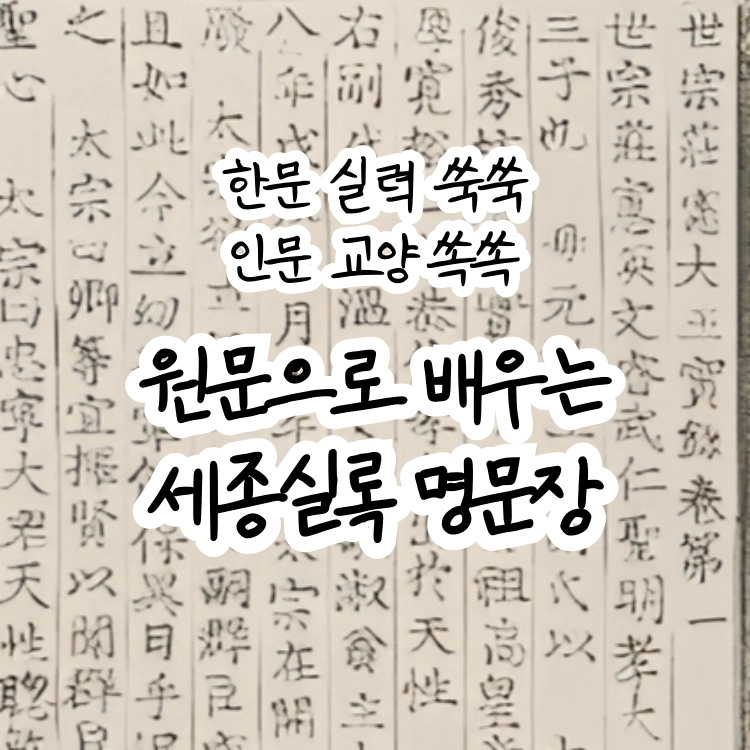 한문 실력 쑥쑥
인문 교양 쏙쏙
원문으로 배우는
세종실록 명문장
世宗莊憲大王實錄卷第一
世宗莊憲英文睿武仁聖明孝大
三子也 母元
俊秀
祖高皇
寬
於天性
右副
溫
淑食主
八
年戊
月
太宗在
開
嗣群臣
且如此今立幼
保其日乎
之
太宗曰卿等宜擇賢以聞群
聖心
太宗曰忠寧大君天性聰